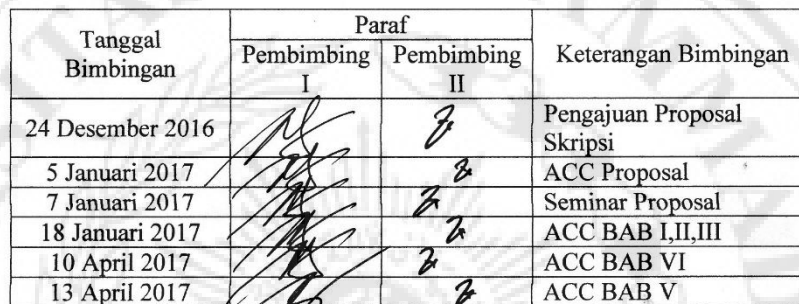 Tanggal Bimbingan
Paraf
Keterangan Bimbingan
Pembimbing I
Pembimbing II
24 Desember 2016
Pengajuan Proposal
Skripsi
5 Januari 2017
ACC Proposal
7 Januari 2017
Seminar Proposal
18 Januari 2017
ACC BAB I,II,III
10 April 2017
ACC BAB VI
13 April 2017
ACC BAB V